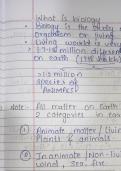 What is biology
• Biology is the study
organism or living
• Living world is very
• 1.7-1.8 million different
on earth
>1.2 million
species of
Animals
Note:- All matter on Earth
2 categories in
① Animate matter / Livin
Plants & animals
② Inanimate (Non-liv
wind, sea, fire